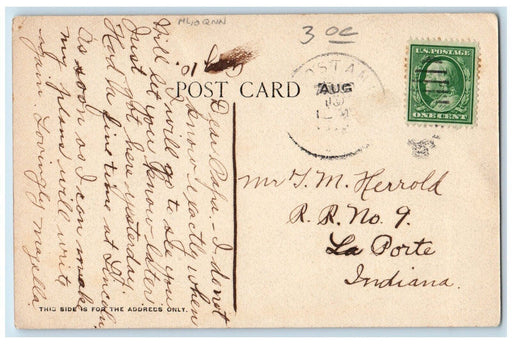 ML10QNN
3 oc
POST CARD
U.S. POSTAGE
ONE CENT
AUG
10
Dear Papa,- I do not
know exactly when
I will go to see you.
Will let you know later.
Just got here yesterday.
Had a fine time at Lincoln
As soon as I can make
my plans will write
again. Lovingly
Mr T. M. Herrold
R. R. No. 9.
La Porte
Indiana.
THIS SIDE IS FOR THE ADDRESS ONLY.